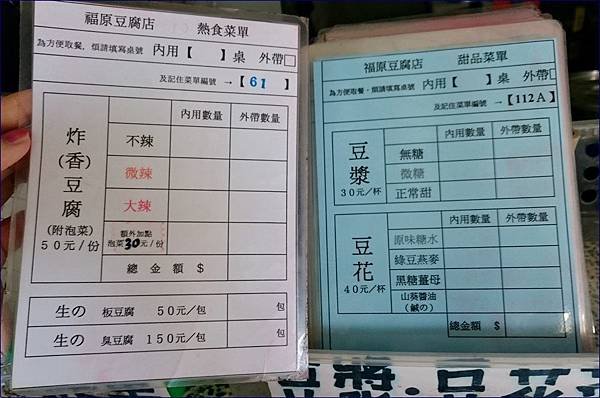 福原豆腐店 熱食菜單
為方便取餐，煩請填寫桌號 內用【 】桌 外帶□
及記住菜單編號 →【61】
內用數量 外帶數量
炸(香)豆腐
(附泡菜)
50元/份
不辣
微辣
大辣
額外加點
泡菜30元/份
總金額 $
生の 板豆腐 50元/包 包
生の 臭豆腐 150元/包 包
福原豆腐店 甜品菜單
為方便取餐，煩請填寫桌號 內用【 】桌 外帶□
及記住菜單編號 →【112A】
內用數量 外帶數量
豆漿
30元/杯
無糖
微糖
正常甜
內用數量 外帶數量
豆花
40元/杯
原味糖水
綠豆燕麥
黑糖薑母
山葵醬油
(鹹の)
總金額 $